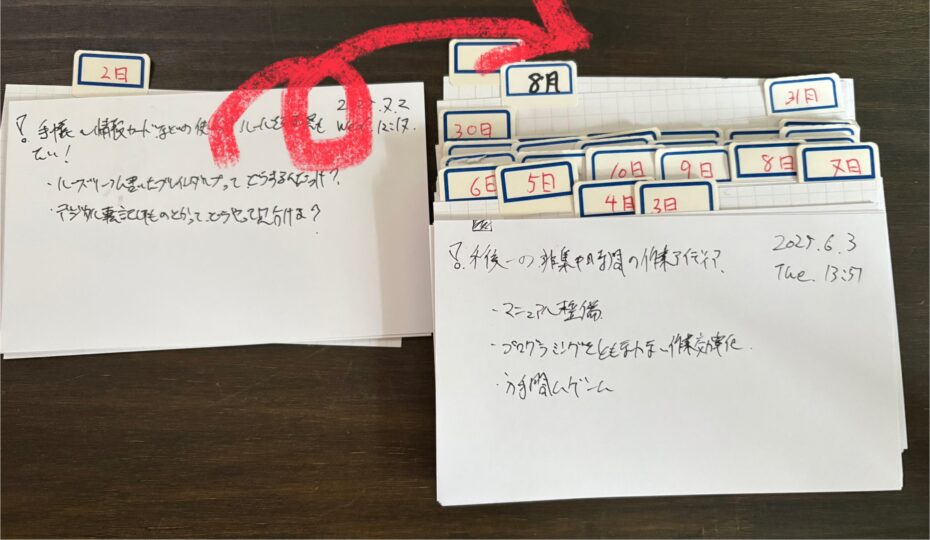 2日
2025.7.2
手帳や情報カードなどの使い ルールを
Wed. 12:17.
たい！
・ルーズリーフに書いたブレインダンプってどうするんだっけ？
・デジタルに転記したものとかってどうやって見分ける？
8月
31日
30日
10日
9日
8日
7日
6日
5日
4日
3日
2025.6.3
Tue. 13:57
午後一の非集中時間の作業アイディア.
・マニュアル整備
・プログラミングをともなわない作業効率化
・ゲーム